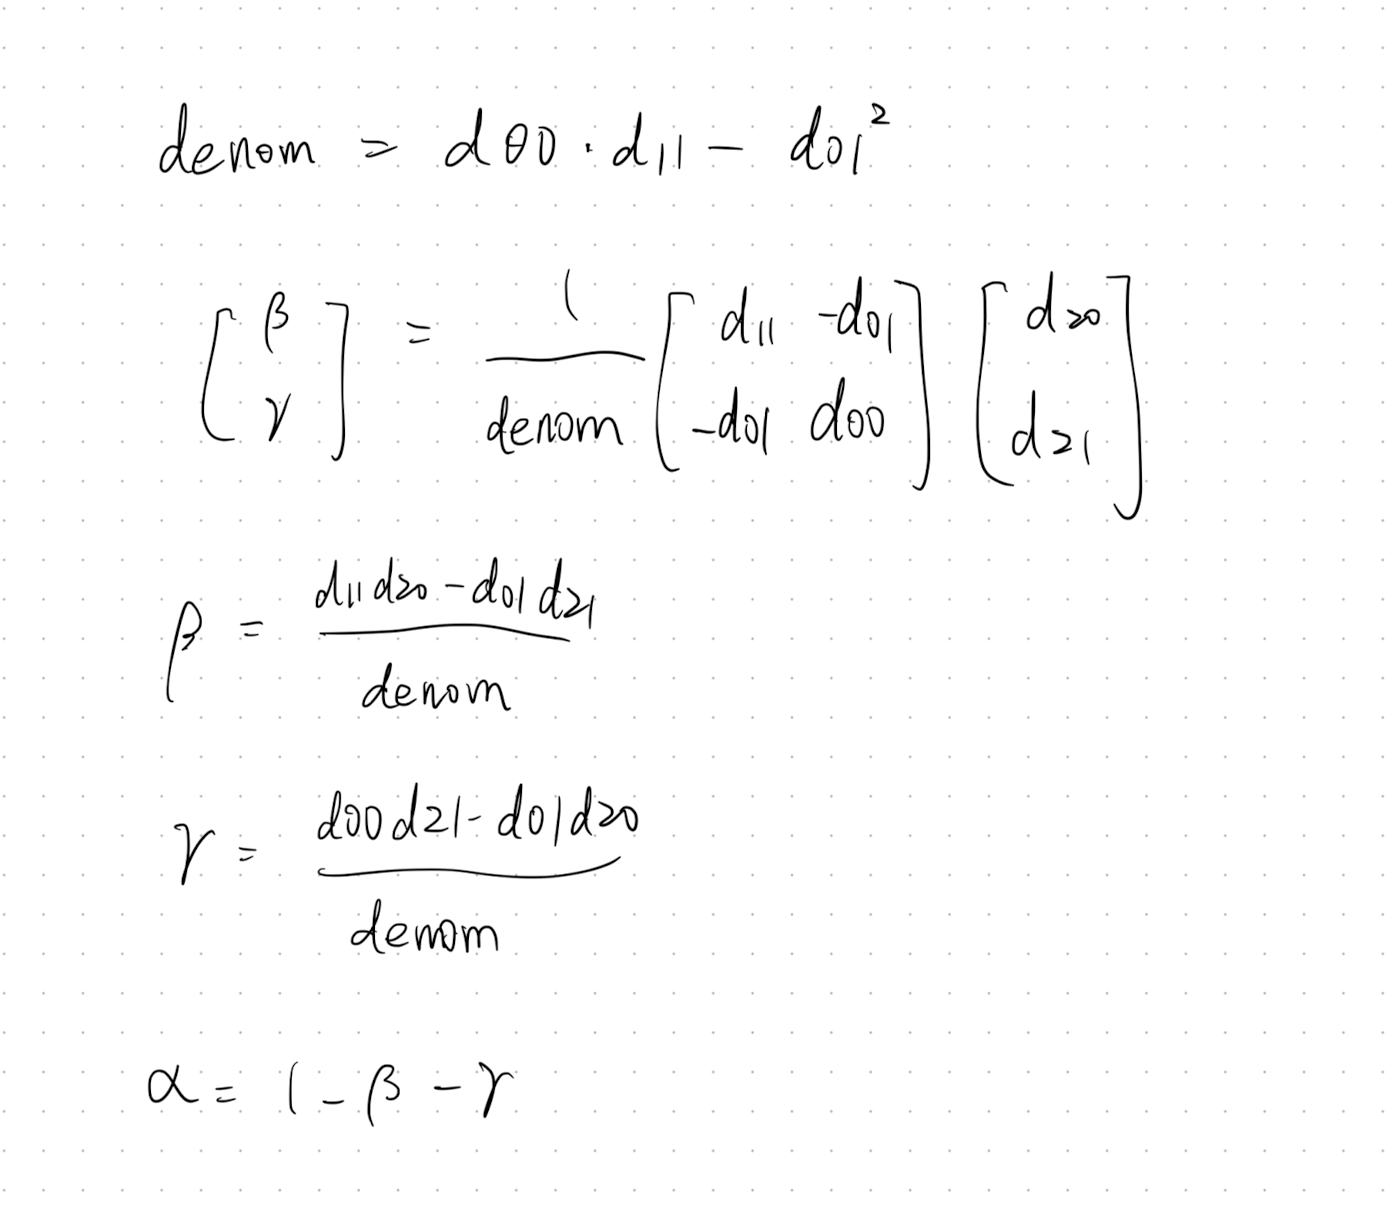 denom = d00 · d11 - d01²
[β γ] = 1/denom [d11 -d01 -d01 d00] [d20 d21]
β = d11d20 - d01d21 / denom
γ = d00d21 - d01d20 / denom
α = 1 - β - γ